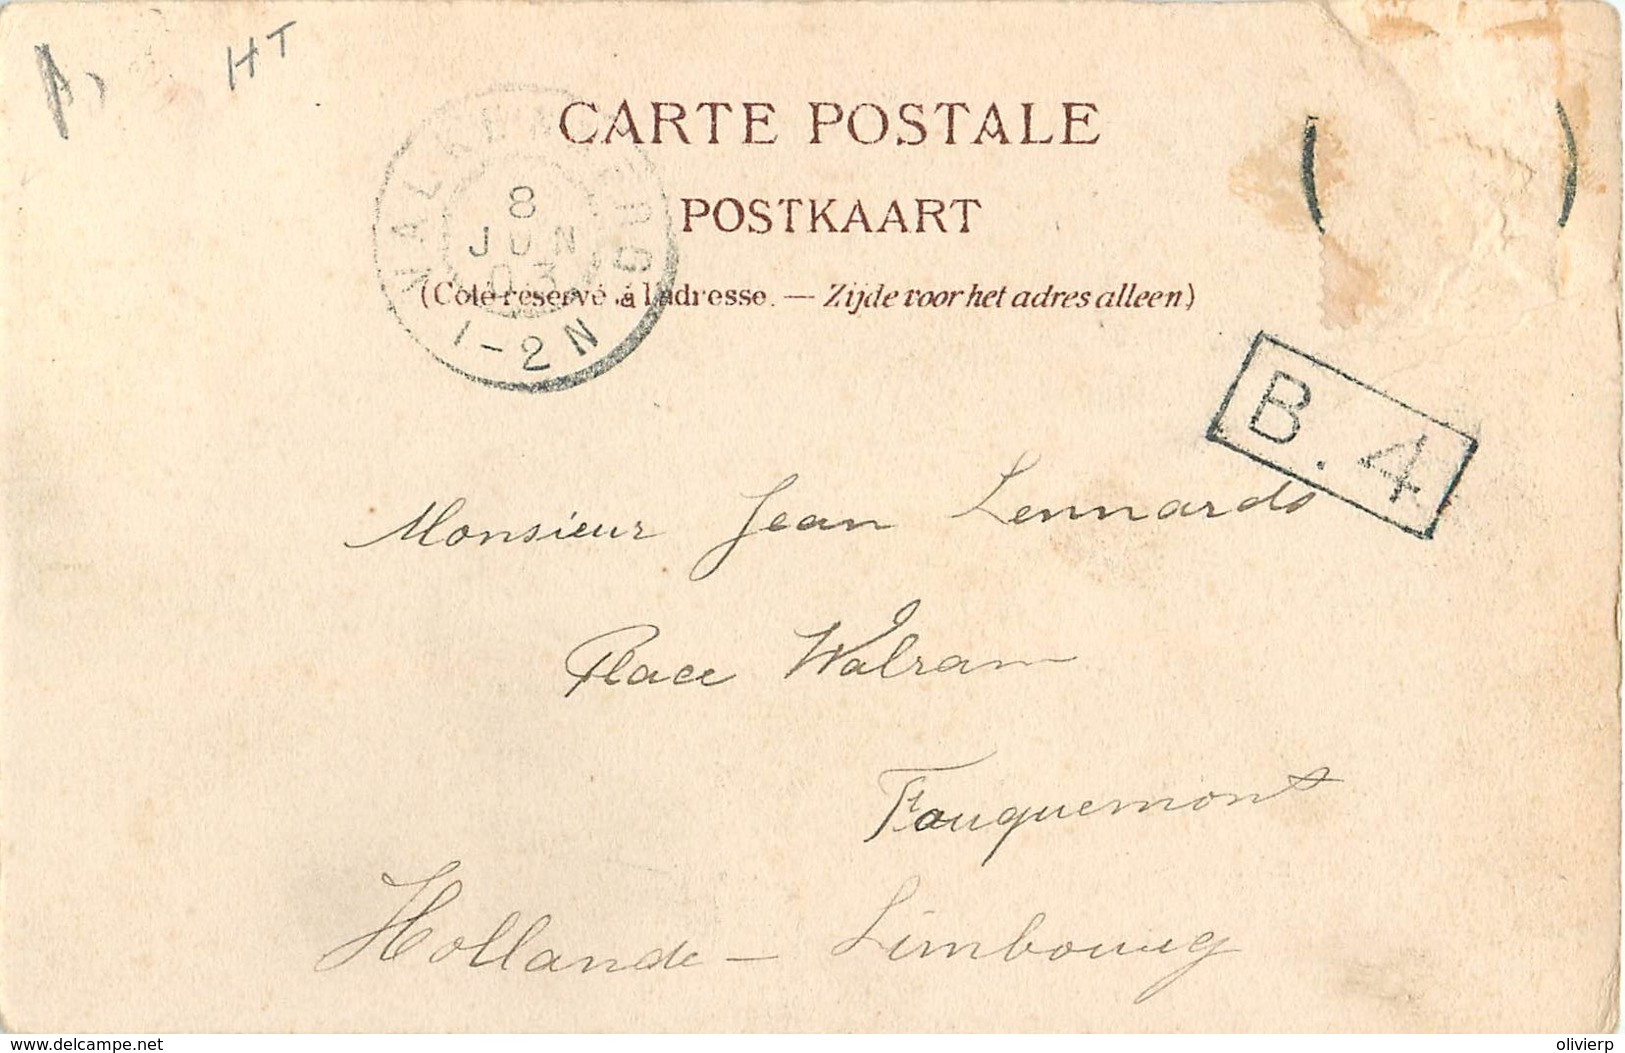 HT
CARTE POSTALE
POSTKAART
(Côté réservé à l'adresse. — Zijde voor het adres alleen)
VALKENBURG
8
JUN
03
1-2N
B.4
Monsieur Jean Lennards
Place Walram
Fauquemont
Hollande - Limbourg
www.delcampe.net
olivierp